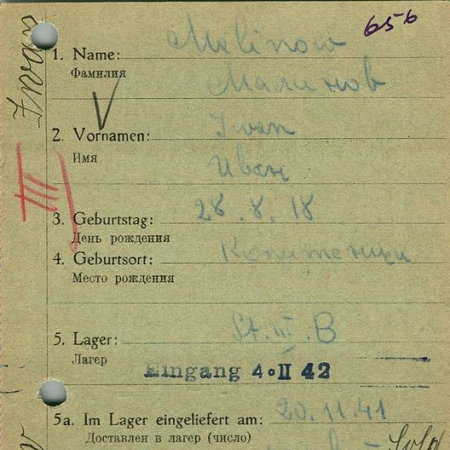 656
1. Name: Malinow
Фамилия Малинов
2. Vornamen: Iwan
Имя Иван
3. Geburtstag: 28.8.18
День рождения
4. Geburtsort:
Место рождения
5. Lager: St. III. B
Лагерь
Eingang 4.II 42
5a. Im Lager eingeliefert am: 20.11.41
Доставлен в лагерь (число)
Iwan
III